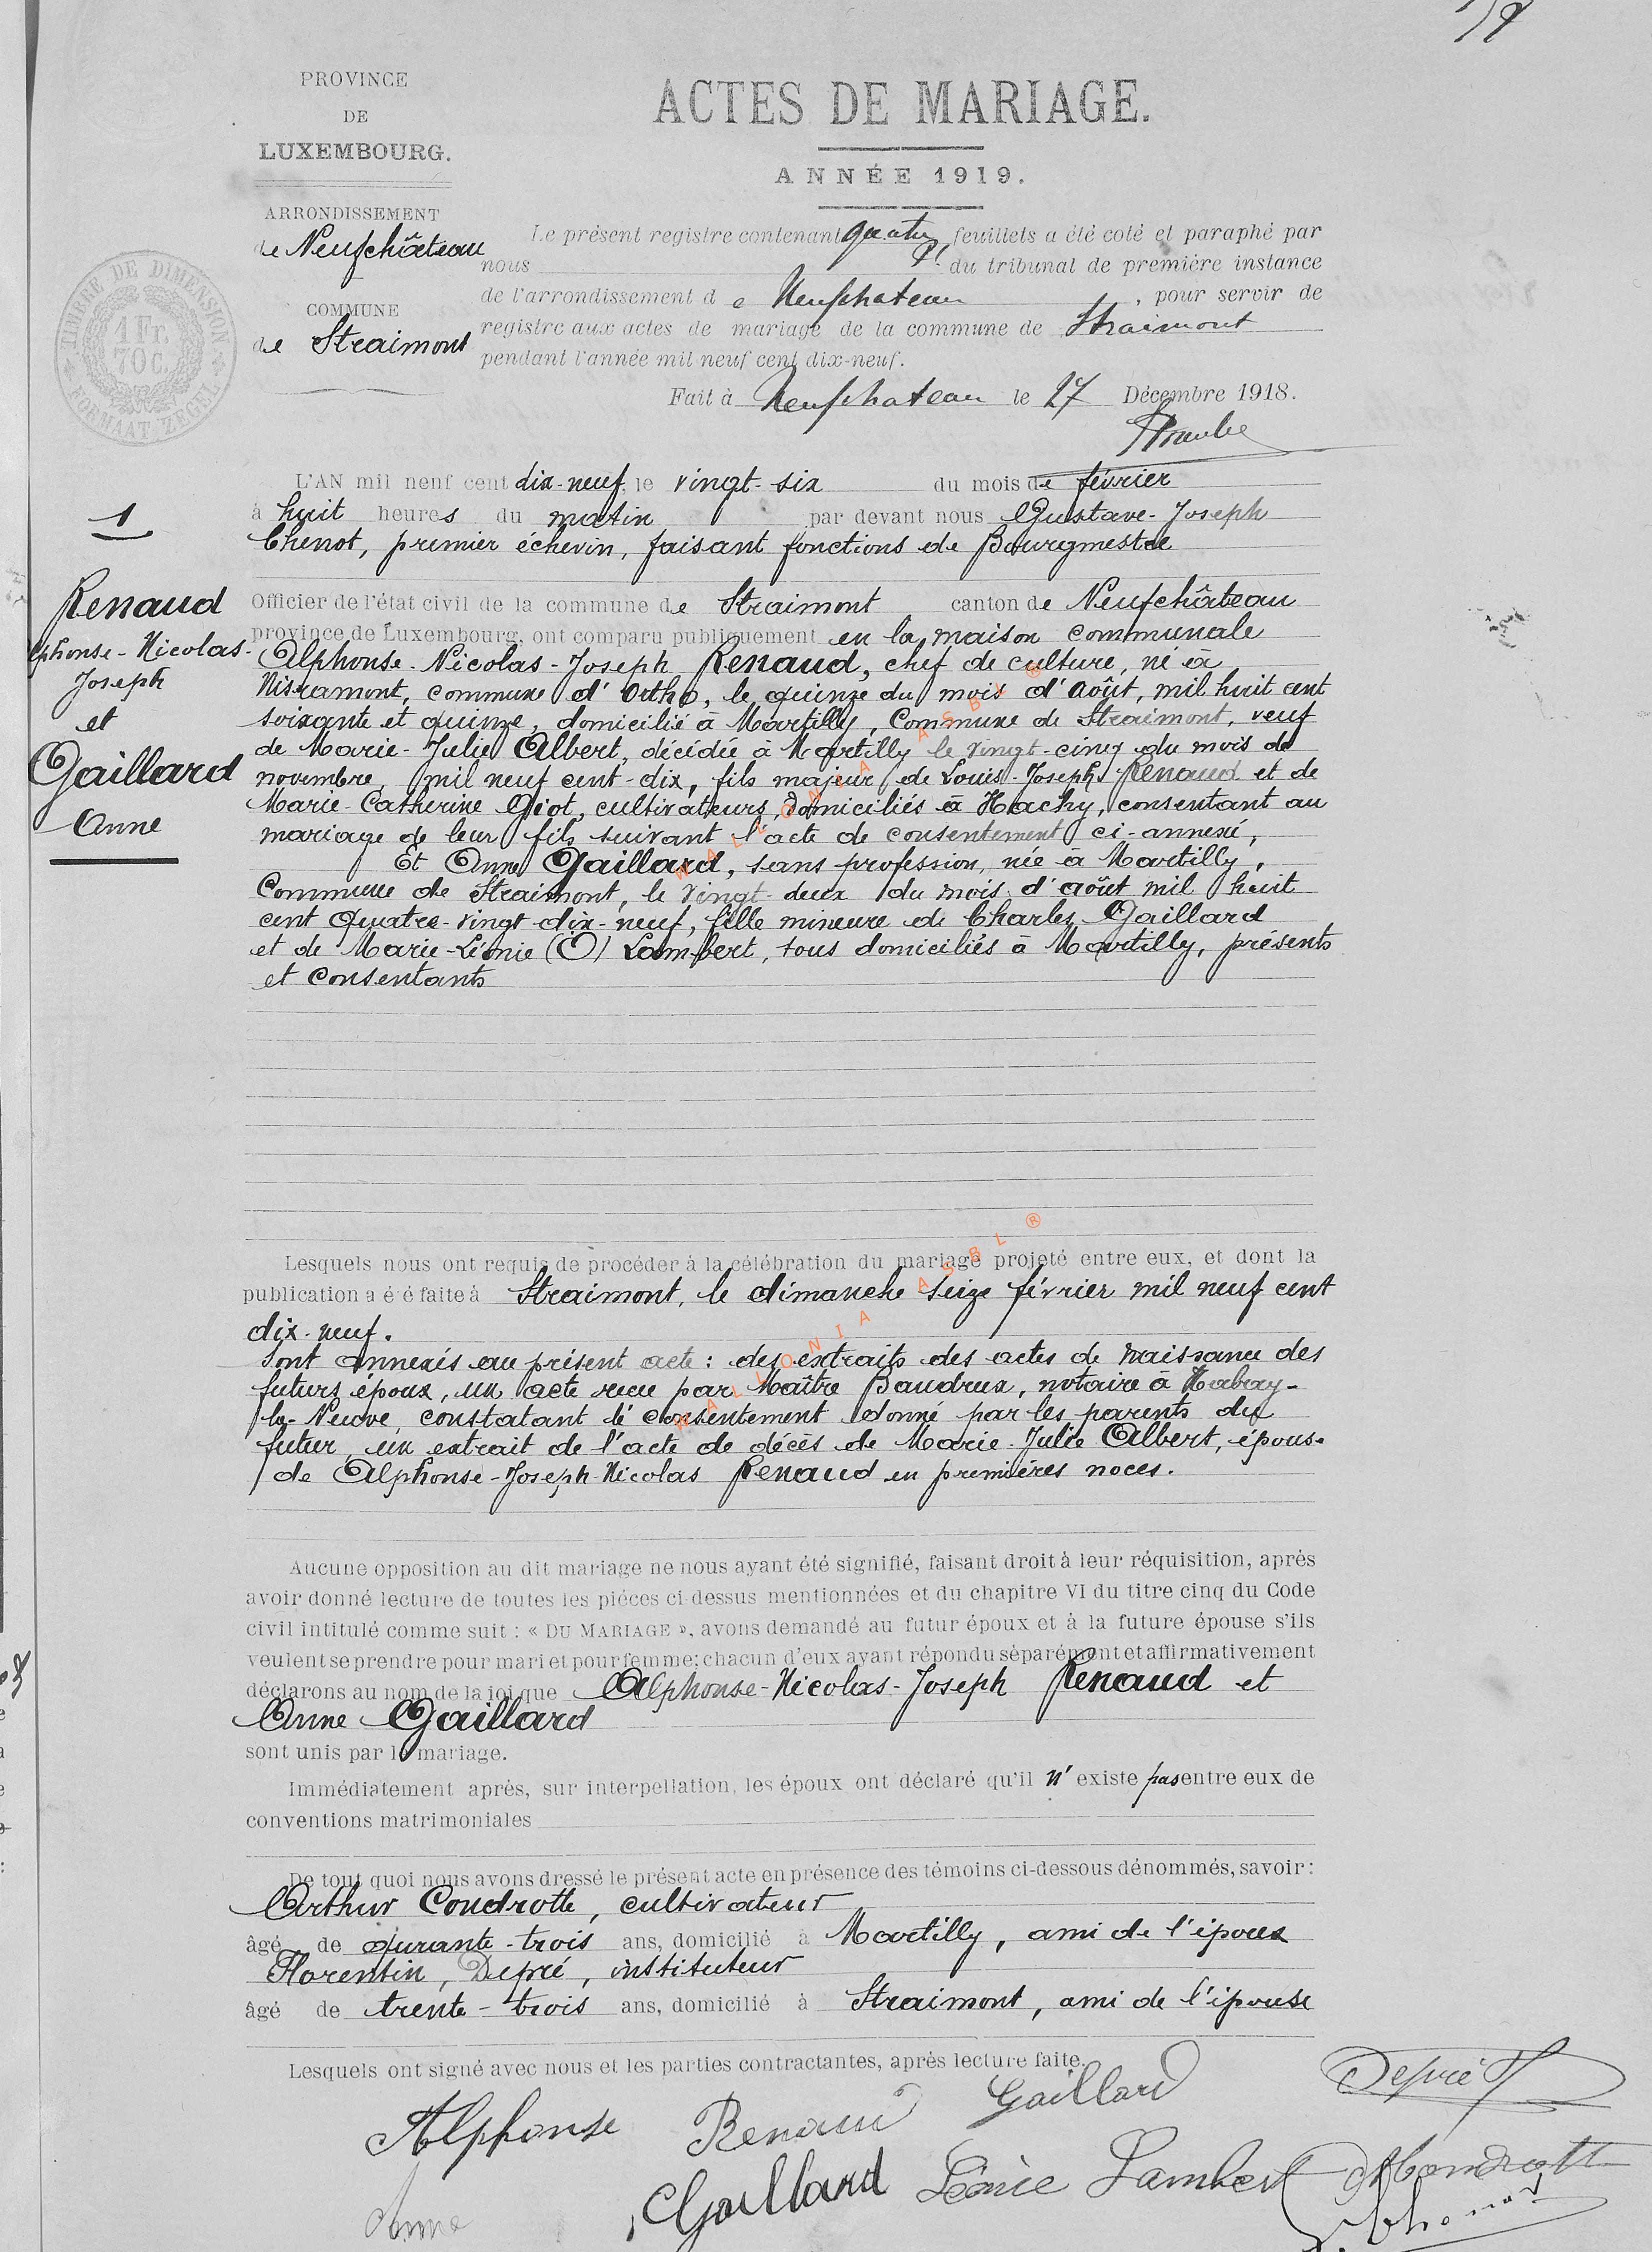 PROVINCE
DE
LUXEMBOURG.
ARRONDISSEMENT
de Neufchâteau
COMMUNE
de Straimont
TIMBRE DE DIMENSION
1 Fr.
70 C.
FORMAAT ZEGEL
ACTES DE MARIAGE.
ANNÉE 1919.
Le présent registre contenant quatre feuillets a été coté et paraphé par
nous du tribunal de première instance
de l'arrondissement de Neufchateau, pour servir de
registre aux actes de mariage de la commune de Straimont
pendant l'année mil neuf cent dix-neuf.
Fait à Neufchateau le 27 Décembre 1918.
1
Renaud
Alphonse-Nicolas-
Joseph
et
Gaillard
Anne
L'AN mil neuf cent dix-neuf, le vingt-six du mois de février
à huit heures du matin par devant nous Gustave-Joseph
Chenot, premier échevin, faisant fonctions de Bourgmestre
Officier de l'état civil de la commune de Straimont canton de Neufchâteau
province de Luxembourg, ont comparu publiquement en la maison communale
Alphonse-Nicolas-Joseph Renaud, chef de culture, né à
Nisramont, commune d'Ortho, le quinze du mois d'août, mil huit cent
soixante et quinze, domicilié à Martilly, Commune de Straimont, veuf
de Marie-Julie Albert, décédée à Martilly le vingt-cinq du mois de
novembre, mil neuf cent-dix, fils majeur de Louis-Joseph Renaud et de
Marie-Catherine Giot, cultivateurs, domiciliés à Hachy, consentant au
mariage de leur fils suivant l'acte de consentement ci-annexé,
Et Anne Gaillard, sans profession, née à Martilly,
Commune de Straimont, le vingt-deux du mois d'août mil huit
cent quatre-vingt-dix-neuf, fille mineure de Charles Gaillard
et de Marie-Léonie (O) Lambert, tous domiciliés à Martilly, présents
et consentants
Lesquels nous ont requis de procéder à la célébration du mariage projeté entre eux, et dont la
publication a été faite à Straimont, le dimanche seize février mil neuf cent
dix-neuf.
Sont annexés au présent acte : des extraits des actes de naissance des
futurs époux, un acte reçu par Maître Baudrux, notaire à Habay-
la-Neuve, constatant le consentement donné par les parents du
futur, un extrait de l'acte de décès de Marie-Julie Albert, épouse
de Alphonse-Joseph-Nicolas Renaud en premières noces.
Aucune opposition au dit mariage ne nous ayant été signifié, faisant droit à leur réquisition, après
avoir donné lecture de toutes les pièces ci-dessus mentionnées et du chapitre VI du titre cinq du Code
civil intitulé comme suit : « DU MARIAGE », avons demandé au futur époux et à la future épouse s'ils
veulent se prendre pour mari et pour femme; chacun d'eux ayant répondu séparément et affirmativement
déclarons au nom de la loi que Alphonse-Nicolas-Joseph Renaud et
Anne Gaillard
sont unis par le mariage.
Immédiatement après, sur interpellation, les époux ont déclaré qu'il n'existe pas entre eux de
conventions matrimoniales
De tout quoi nous avons dressé le présent acte en présence des témoins ci-dessous dénommés, savoir :
Arthur Condrotte, cultivateur
âgé de qurante-trois ans, domicilié à Martilly, ami de l'époux
Florentin, Depré, instituteur
âgé de trente-trois ans, domicilié à Straimont, ami de l'épouse
Lesquels ont signé avec nous et les parties contractantes, après lecture faite.
Alphonse Renaud Gaillard
Anne Gaillard Léonie Lambert
WALLONIA ASBL ®
WALLONIA ASBL ®